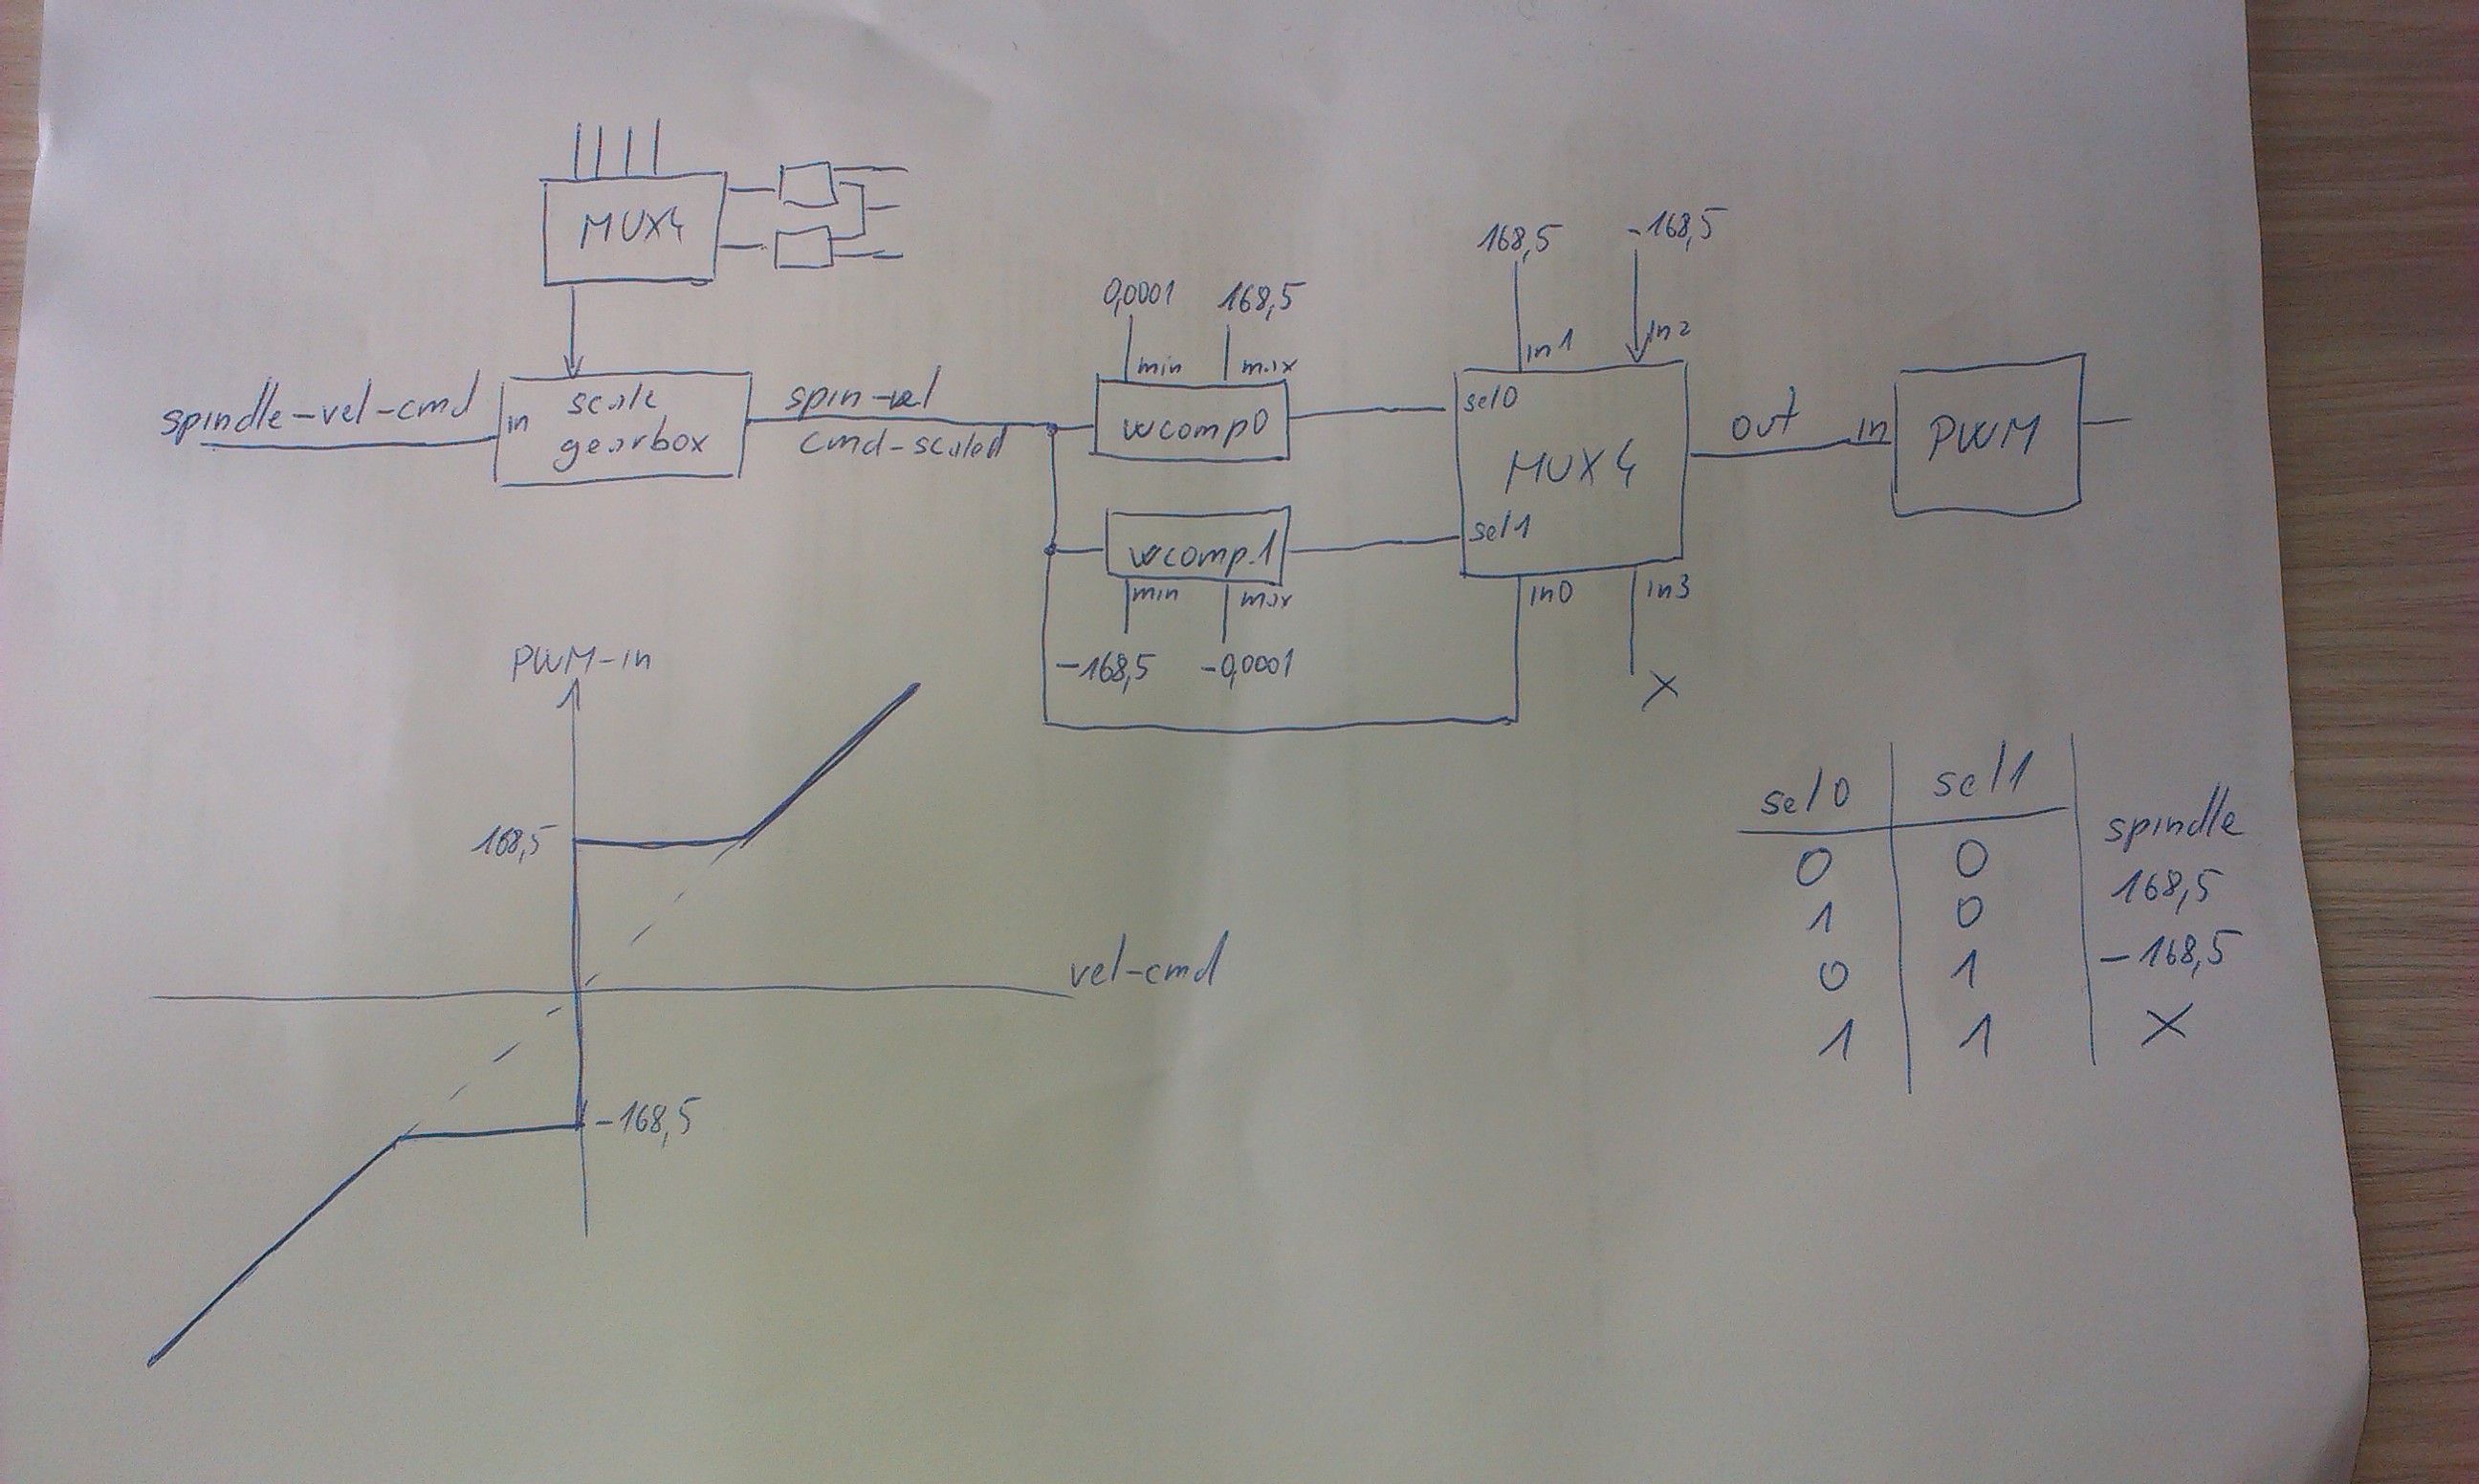 MUX4
168,5 -168,5
0,0001 168,5
min max
in1 in2
spindle-vel-cmd
in scale gearbox
spin-vel
cmd-scaled
wcomp0
sel0
MUX4
out in
PWM
wcomp.1
sel1
min max
in0 in3
-168,5 -0,0001
X
PWM-in
168,5
vel-cmd
-168,5
sel0 sel1
spindle
0 0
168,5
1 0
-168,5
0 1
X
1 1